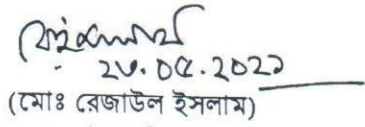 ২৮.০৫.২০২১
(মোঃ রেজাউল ইসলাম)